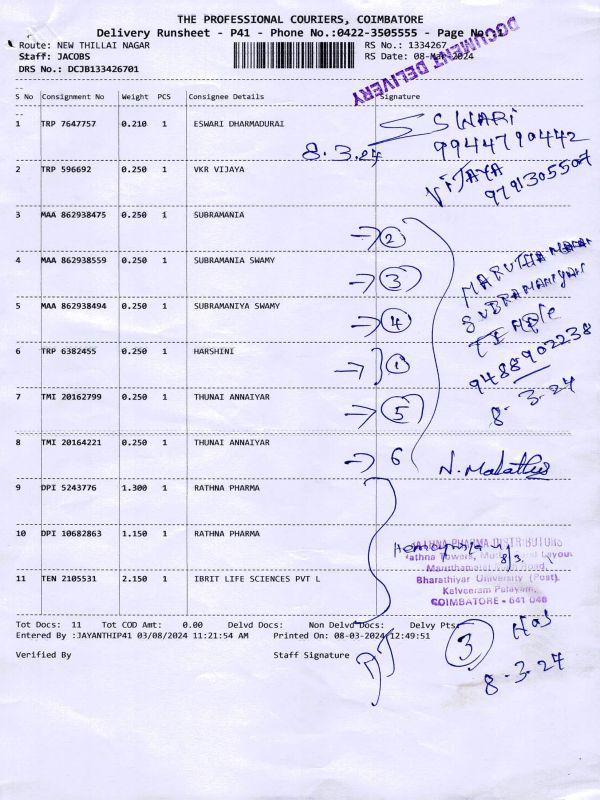 THE PROFESSIONAL COURIERS, COIMBATORE
Delivery Runsheet - P41 - Phone No.:0422-3505555 - Page No.:1
Route: NEW THILLAI NAGAR RS No.: 1334267
Staff: JACOBS RS Date: 08-Mar-2024
DRS No.: DCJB133426701
DOCUMENT DELIVERY
S No Consignment No Weight PCS Consignee Details Signature
1 TRP 7647757 0.210 1 ESWARI DHARMADURAI
8.3.24
ESWARI
9944790442
2 TRP 596692 0.250 1 VKR VIJAYA
VIJAYA
9791305507
3 MAA 862938475 0.250 1 SUBRAMANIA
2
4 MAA 862938559 0.250 1 SUBRAMANIA SWAMY
3
5 MAA 862938494 0.250 1 SUBRAMANIYA SWAMY
4
6 TRP 6382455 0.250 1 HARSHINI
1
7 TMI 20162799 0.250 1 THUNAI ANNAIYAR
5
8 TMI 20164221 0.250 1 THUNAI ANNAIYAR
6
SUBRAMANIYAR
TEMPLE
9488902238
8.3.24
9 DPI 5243776 1.300 1 RATHNA PHARMA
10 DPI 10682863 1.150 1 RATHNA PHARMA
11 TEN 2105531 2.150 1 IBRIT LIFE SCIENCES PVT L
RATHNA PHARMA DISTRIBUTORS
8/3.
Bharathiyar University (Post),
Kalveeram Palayam,
COIMBATORE - 641 046
Tot Docs: 11 Tot COD Amt: 0.00 Delvd Docs: Non Delvd Docs: Delvy Pts:
Entered By :JAYANTHIP41 03/08/2024 11:21:54 AM Printed On: 08-03-2024 12:49:51
Verified By Staff Signature
3
8.3.24